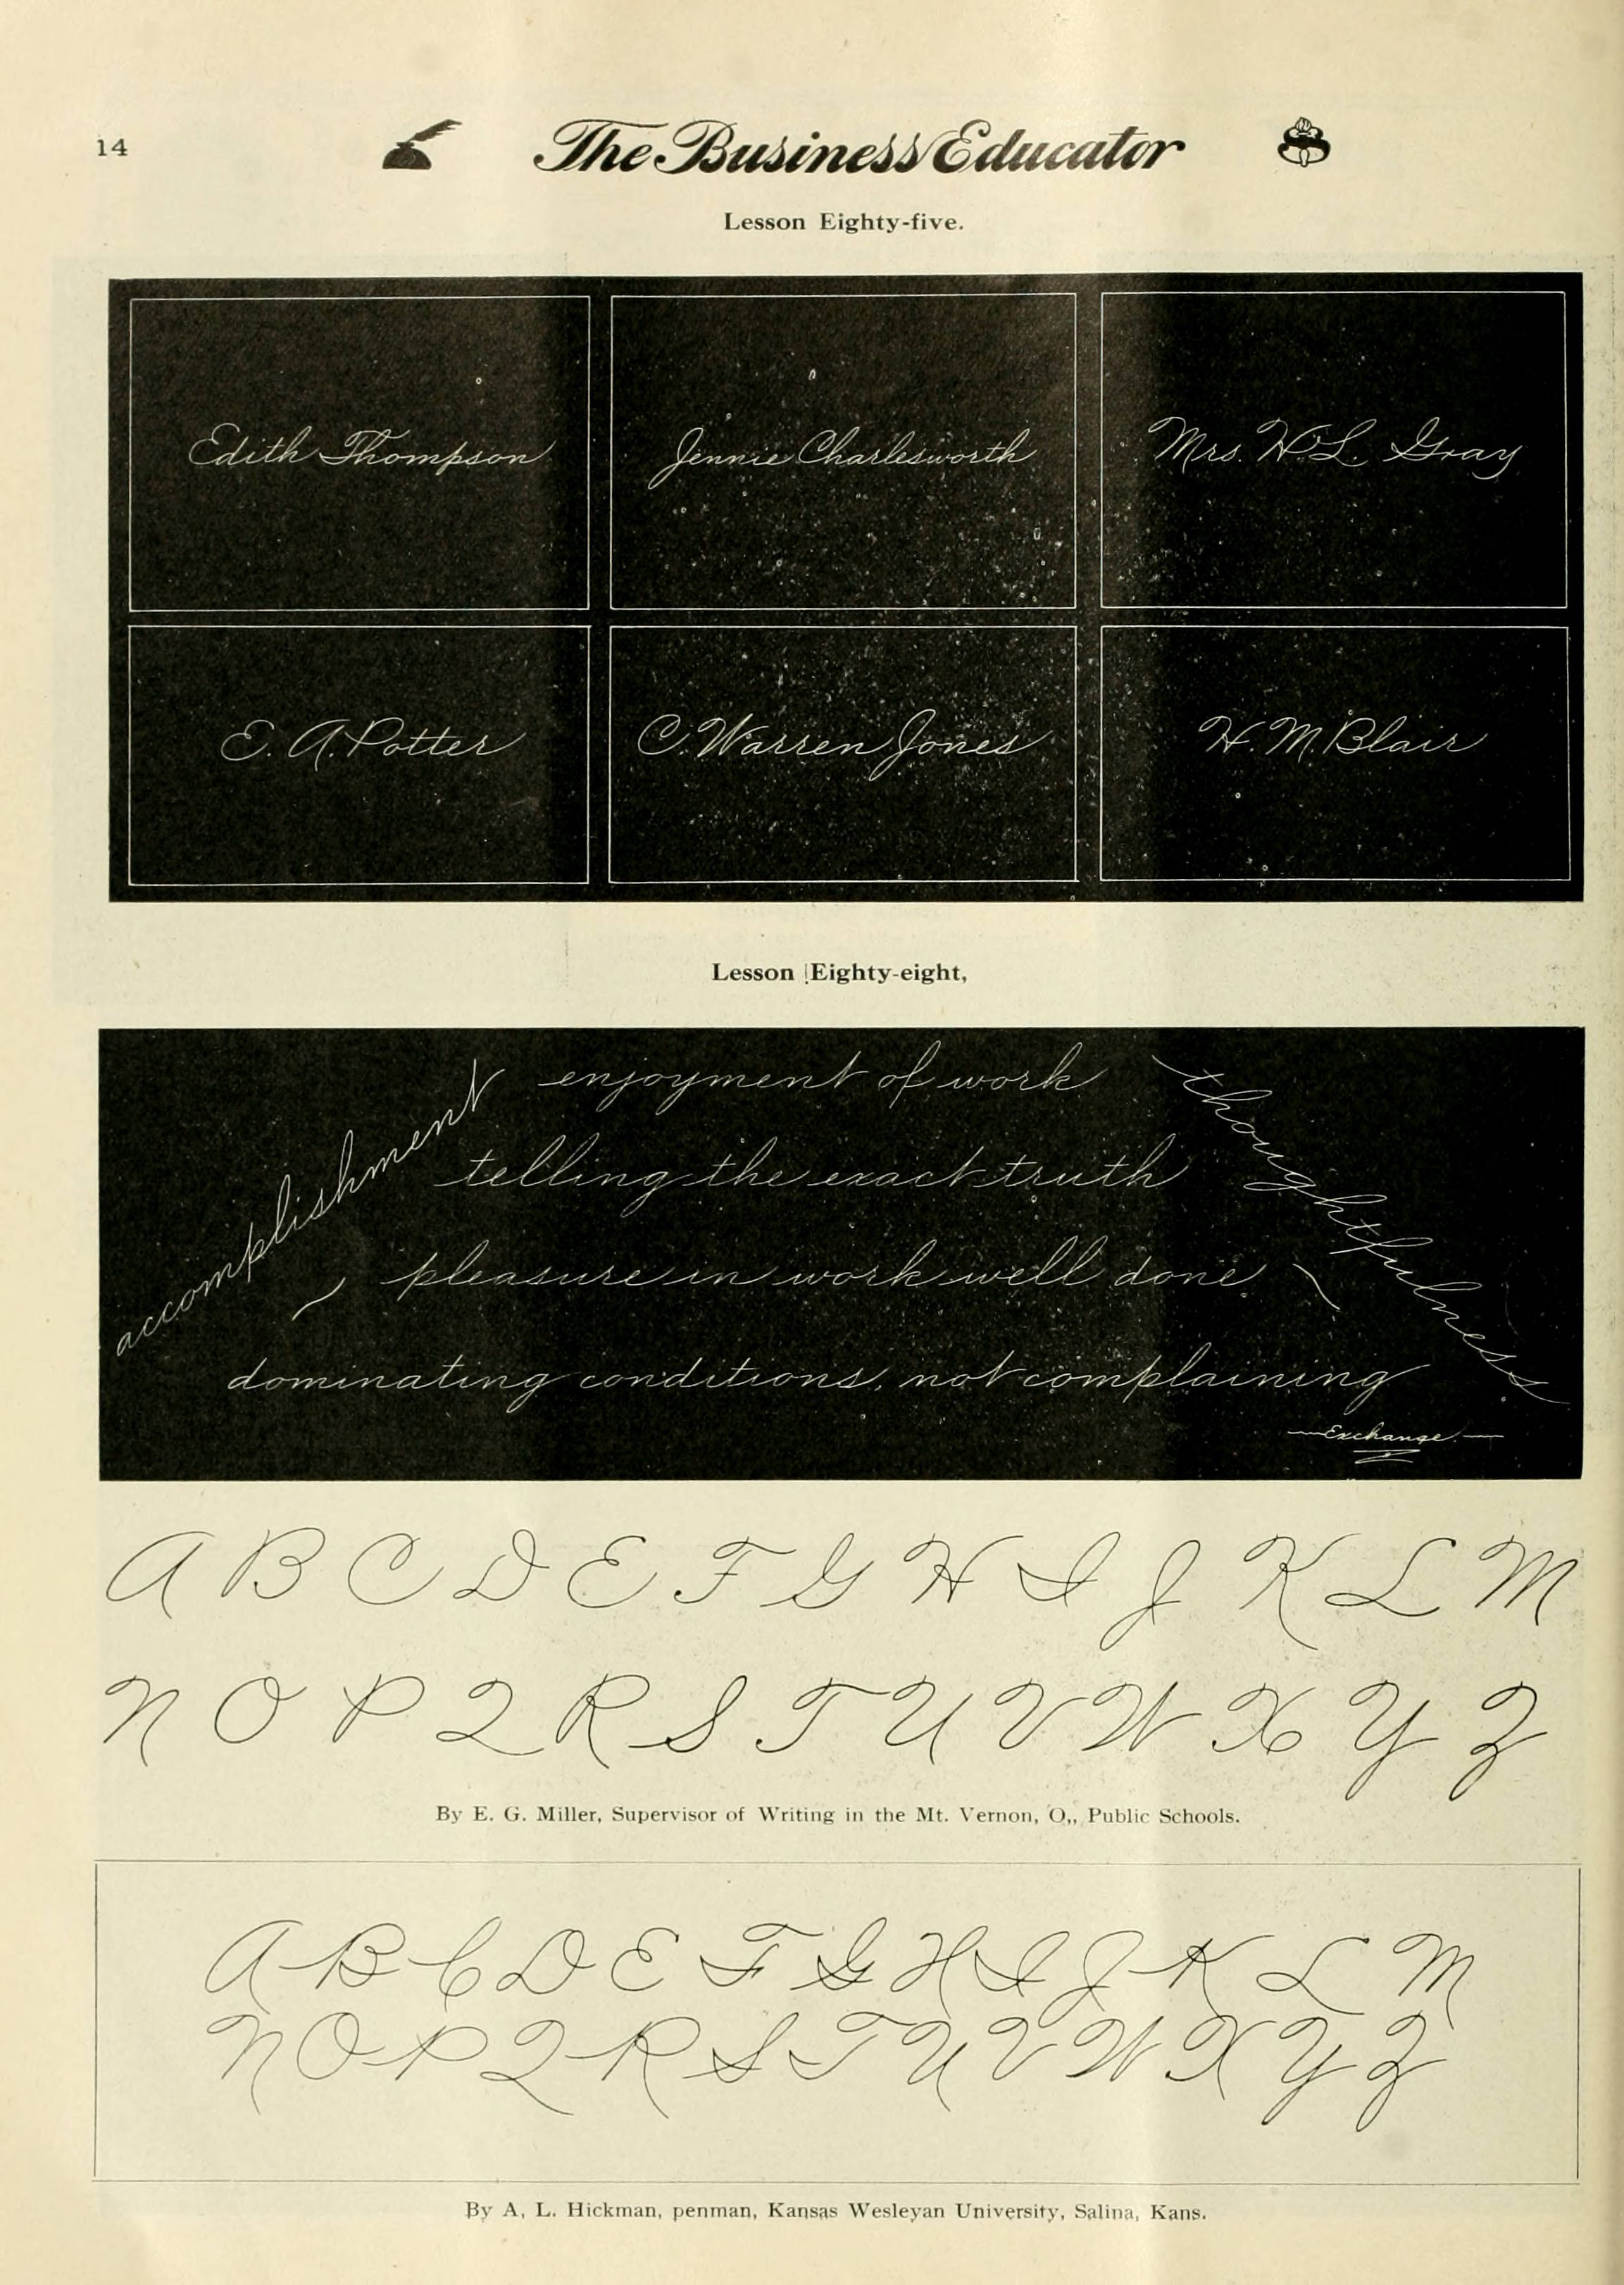 14
The Business Educator
Lesson Eighty-five.
Edith Thompson
Jennie Charlesworth
Mrs. H. L. Gray
E. A. Potter
C. Warren Jones
H. M. Blair
Lesson Eighty-eight,
accomplishment
enjoyment of work
telling the exact truth
pleasure in work well done.
dominating conditions, not complaining
thoughtfulness.
Exchange.
A B C D E F G H I J K L M
N O P Q R S T U V W X Y Z
By E. G. Miller, Supervisor of Writing in the Mt. Vernon, O,, Public Schools.
A B C D E F G H I J K L M
N O P Q R S T U V W X Y Z
By A, L. Hickman, penman, Kansas Wesleyan University, Salina, Kans.